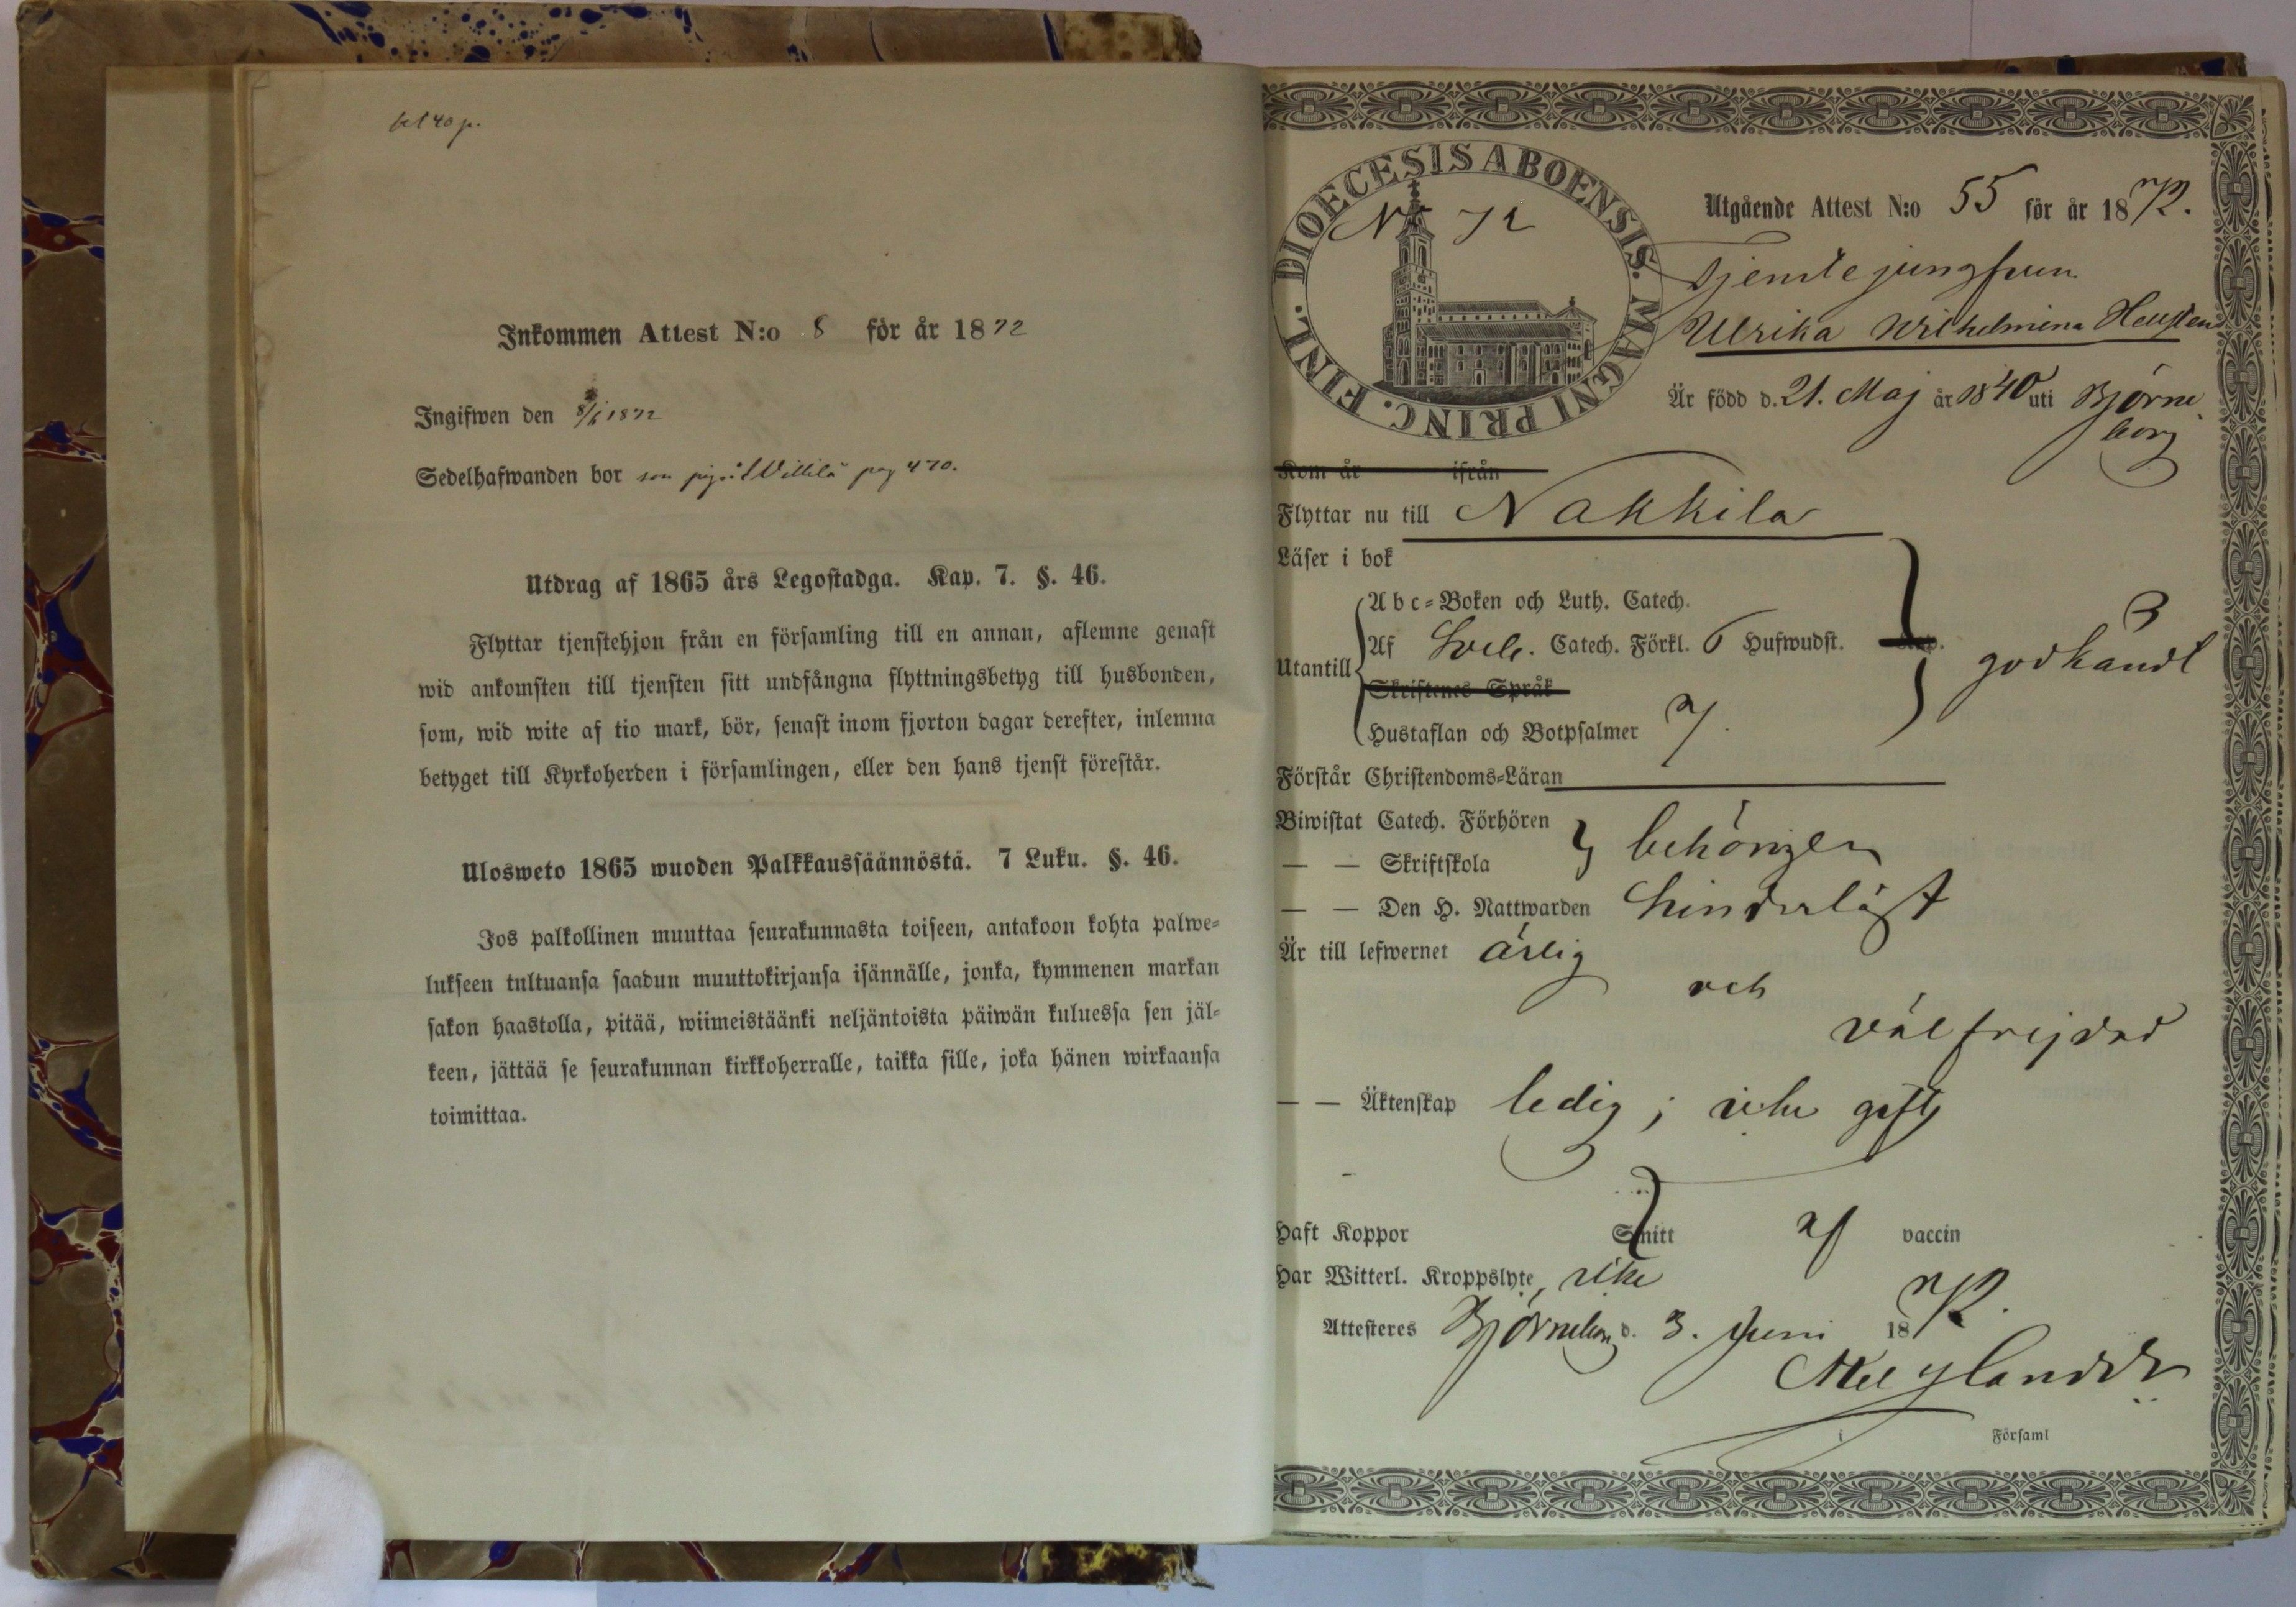 Inkommen Attest N:o 8 för år 1872
Ingifwen den 8/6 1872
Sedelhafwanden bor som piga i Villilä pag 470.
Utdrag af 1865 års Legostadga. Kap. 7. §. 46.
Flyttar tjenstehjon från en församling till en annan, aflemne genast
wid ankomsten till tjensten sitt undfångna flyttningsbetyg till husbonden,
som, wid wite af tio mark, bör, senast inom fjorton dagar derefter, inlemna
betyget till Kyrkoherden i församlingen, eller den hans tjenst förestår.
Ulosweto 1865 wuoden Palkkaussäännöstä. 7 Luku. §. 46.
Jos palkollinen muuttaa seurakunnasta toiseen, antakoon kohta palwe-
lukseen tultuansa saadun muuttokirjansa isännälle, jonka, kymmenen markan
sakon haastolla, pitää, wiimeistäänki neljäntoista päiwän kuluessa sen jäl-
keen, jättää se seurakunnan kirkkoherralle, taikka sille, joka hänen wirkaansa
toimittaa.
DIOECESIS ABOENSIS. MAGNI PRINC. FINL.
N 72
Utgående Attest N:o 55 för år 1872.
Tjenstejungfrun
Ulrika Wilhelmina
Är född d. 21. Maj år 1840 uti Björne
borg
Kom år ifrån
Flyttar nu till Nakkila
Läser i bok
Utantill
Abc-Boken och Luth. Catech.
Af Sveb. Catech. Förkl. 6 Hufwudst.
Skriftenes Språk
Hustaflan och Botpsalmer 7.
godkändt
Förstår Christendoms-Läran
Biwistat Catech. Förhören
— — Skriftskola behörigen
— — Den H. Nattwarden hinderlöst
Är till lefwernet ärlig
och
välfrejdad
— — Äktenskap ledig; icke gift
Haft Koppor Smitt af vaccin
Har Witterl. Kroppslyte, icke
Attesteres Björneborg d. 3. Juni 1872.
i Församl